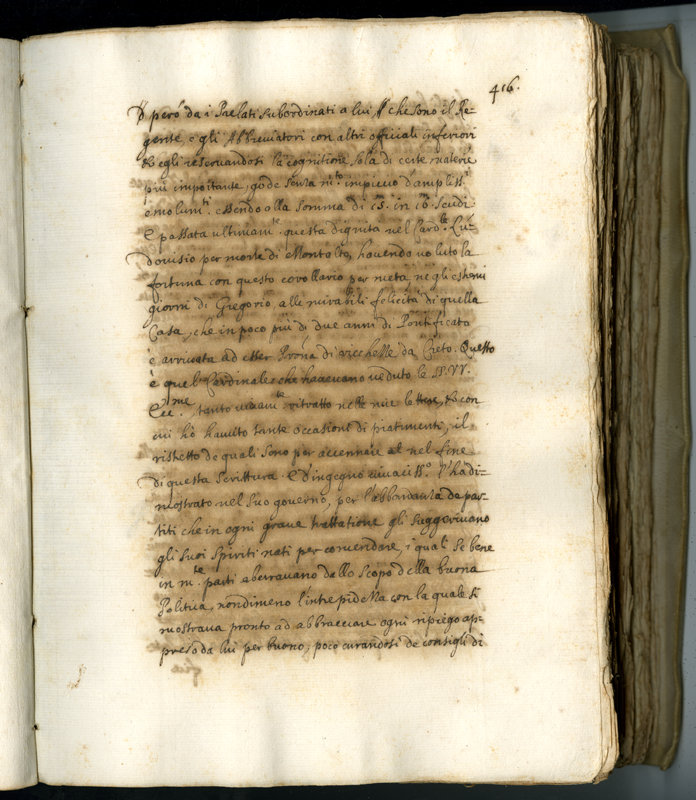 416.
però da i Prelati subordinati a lui, che sono il Re-
gente, e gli Abbreviatori con altri officiali inferiori
& egli rescruandosi la cognitione sola di certe materie
più importante, gode senza m.to impiccio d'ampliss.i
emolum.ti essendo alla somma di scudi
È passata ultimam.te questa dignità nel Card.le Lu-
douisio per morte di Montalto, hauendo uoluto la
fortuna con questo corollario per meta negli estremi
giorni di Gregorio, alle mirabili felicità di quella
Casa, che in poco più di due anni di Pontificato
è arriuata ad esser di richezze da Questo
è quel Cardinale che haueuano ueduto le SS. VV.
Ecc.me, tanto uiuam.te ritratto nelle mie lettere, & con
cui hò hauuto tante occasioni di patimenti, il
ristretto de quali sono per accennare al nel fine
di questa scrittura. È d'ingegno uiuaciss.o l'hà di-
mostrato nel suo gouerno, per l'abbondanza de par-
titi che in ogni graue trattatione gli suggeriuano
gli suoi spiriti nati per comandare, i quali se bene
in m.te parti aberrauano dallo scopo della buona
Politica, nondimeno l'intrepidezza con la quale si
mostraua pronto ad abbracciare ogni ripiego ap-
preso da lui per buono; poco curandosi de consigli di